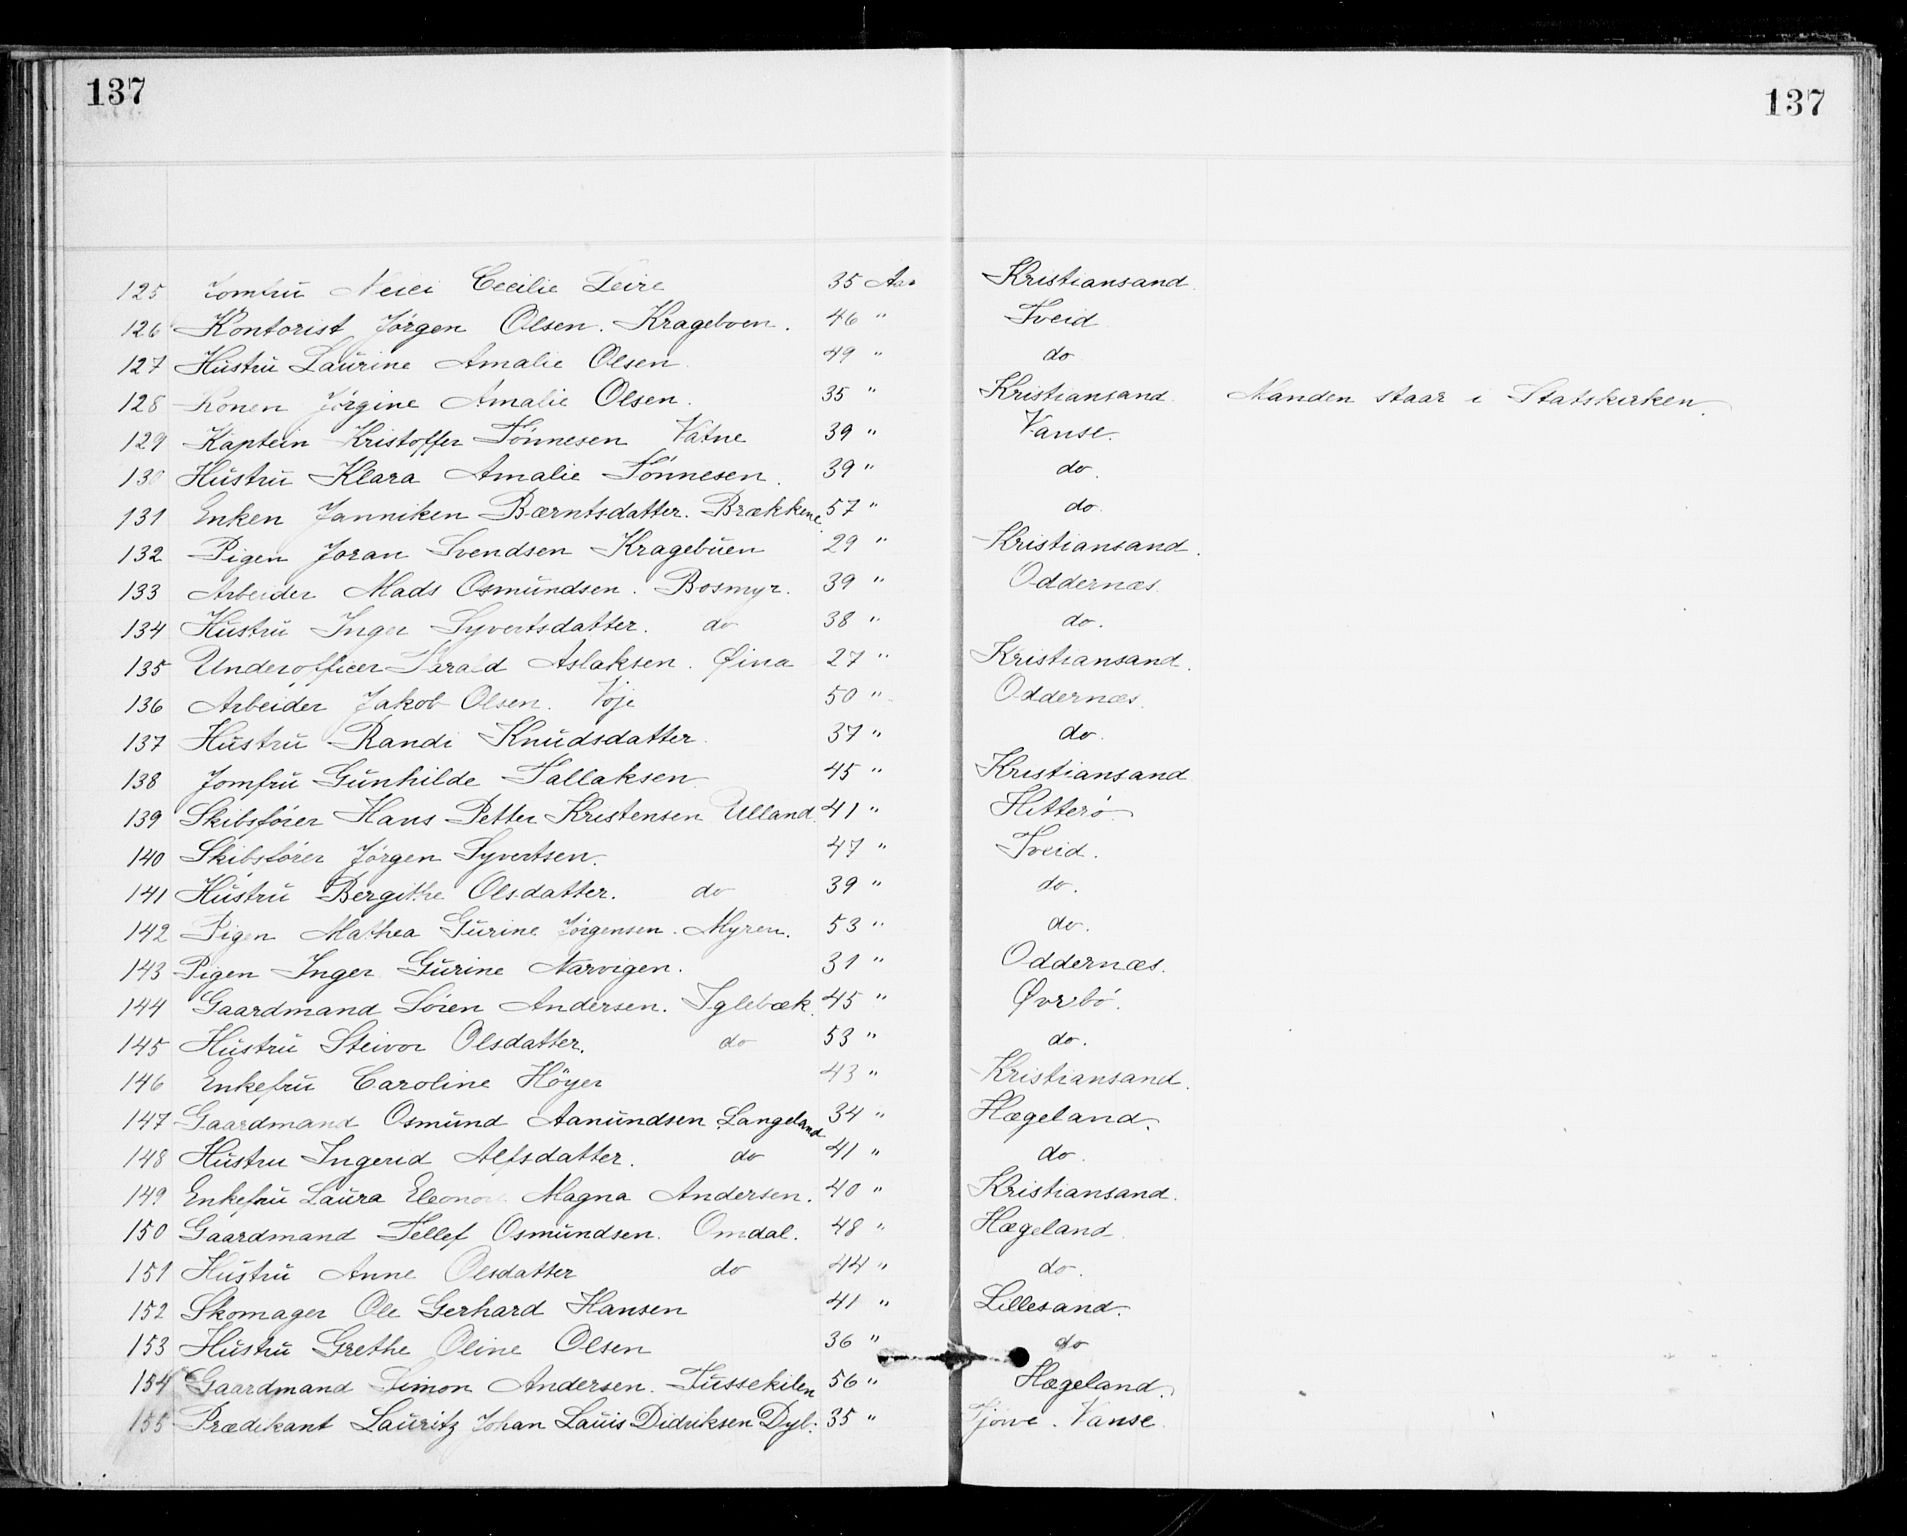 137 137
125 Jomfru Cecilie Leire 35 Aar Kristiansand.
126 Kontorist Jörgen Olsen. Krageboen. 46 " Tveid
127 Hustru Laurine Amalie Olsen. 49 " do
128 Konen Jörgine Amalie Olsen. 35 " Kristiansand. Manden staar i Statskirken.
129 Kaptein Kristoffer Tönnesen Vatne 39 " Vanse.
130 Hustru Klara Amalie Tönnesen. 39 " do.
131 Enken Janniken Bærntsdatter. Brækkene. 57 " do.
132 Pigen Joran Svendsen Kragebuen 29 " Kristiansand.
133 Arbeider Mads Osmundsen. Bosmyr. 39 " Oddernæs.
134 Hustru Inger Syvertsdatter. do 38 " do.
135 Underofficer Harald Aslaksen. Øina 27 " Kristiansand.
136 Arbeider Jakob Olsen. Voje 50 " Oddernæs.
137 Hustru Randi Knudsdatter. 37 " do.
138 Jomfru Gunhilde Tallaksen 45 " Kristiansand
139 Skibsfører Hans Petter Kristensen Ulland. 41 " Hitterö.
140 Skibsfører Jörgen Syvertsen. 47 " Tveid.
141 Hustru Bergithe Olsdatter. do 39 " do.
142 Pigen Mathea Gurine Jörgensen. Myren. 53 " do.
143 Pigen Inger Gurine Narvigen. 31 " Oddernæs.
144 Gaardmand Sören Andersen. Iglebæk. 45 " Øvrebö.
145 Hustru Steivor Olsdatter. do 53 " do.
146 Enkefru Caroline Höyer 43 " Kristiansand.
147 Gaardmand Osmund Aanundsen Langeland 34 " Hægeland.
148 Hustru Ingerid Alfsdatter. do 41 " do.
149 Enkefru Laura Eleonore Magna Andersen. 40 " Kristiansand.
150 Gaardmand Tellef Osmundsen. Omdal. 48 " Hægeland.
151 Hustru Anne Olsdatter do 44 " do.
152 Skomager Ole Gerhard Hansen 41 " Lillesand.
153 Hustru Grethe Oline Olsen 36 " do
154 Gaardmand Simon Andersen. Tussekilen 56 " Hægeland.
155 Prædikant Lauritz Johan Lauis Didriksen Dyb. 35 " Vanse.